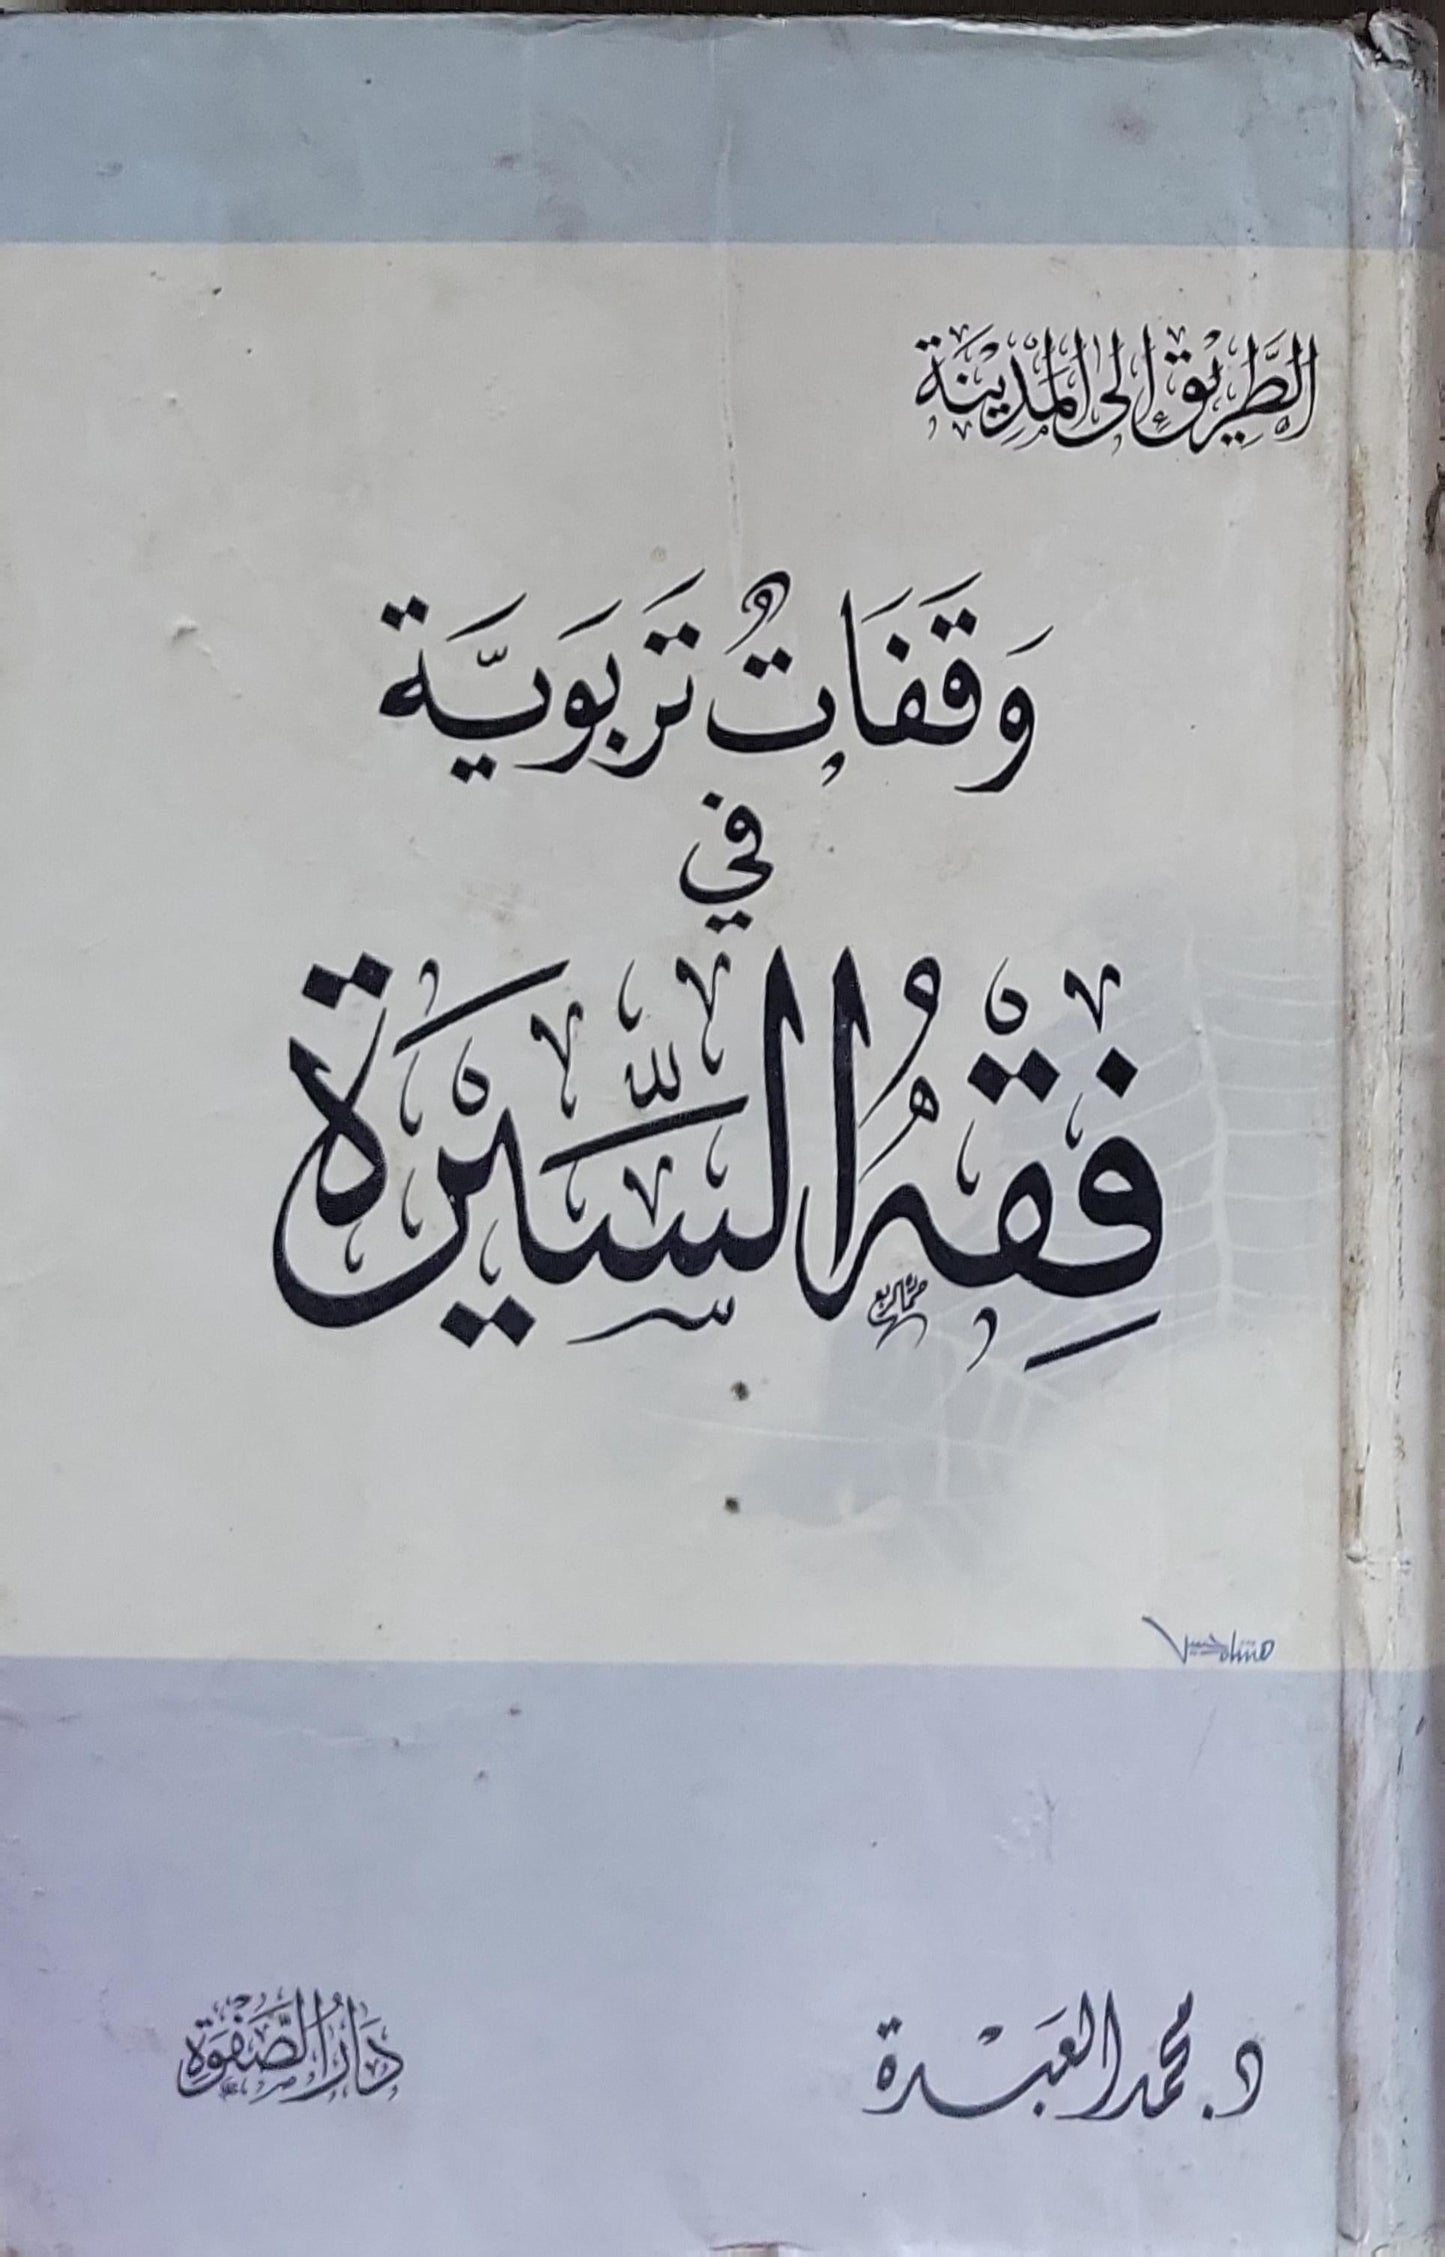 الطَّرِيْقُ إِلَى الْمَدِيْنَةِ
وَقَفَاتٌ تَرَبَوِيَّة
في
فِقْهُ السِّيْرَةِ
د. محمد العَبْدة
دَارُ الصَّفْوَة